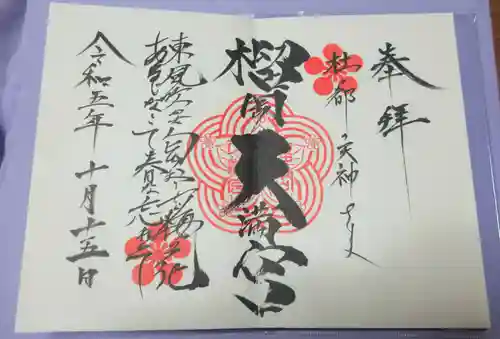 奉拝
杜の都の天神さま
榴岡天満宮
東風吹かば匂ひおこせよ梅の花
あるじなしとて春な忘れそ
令和五年十月十五日